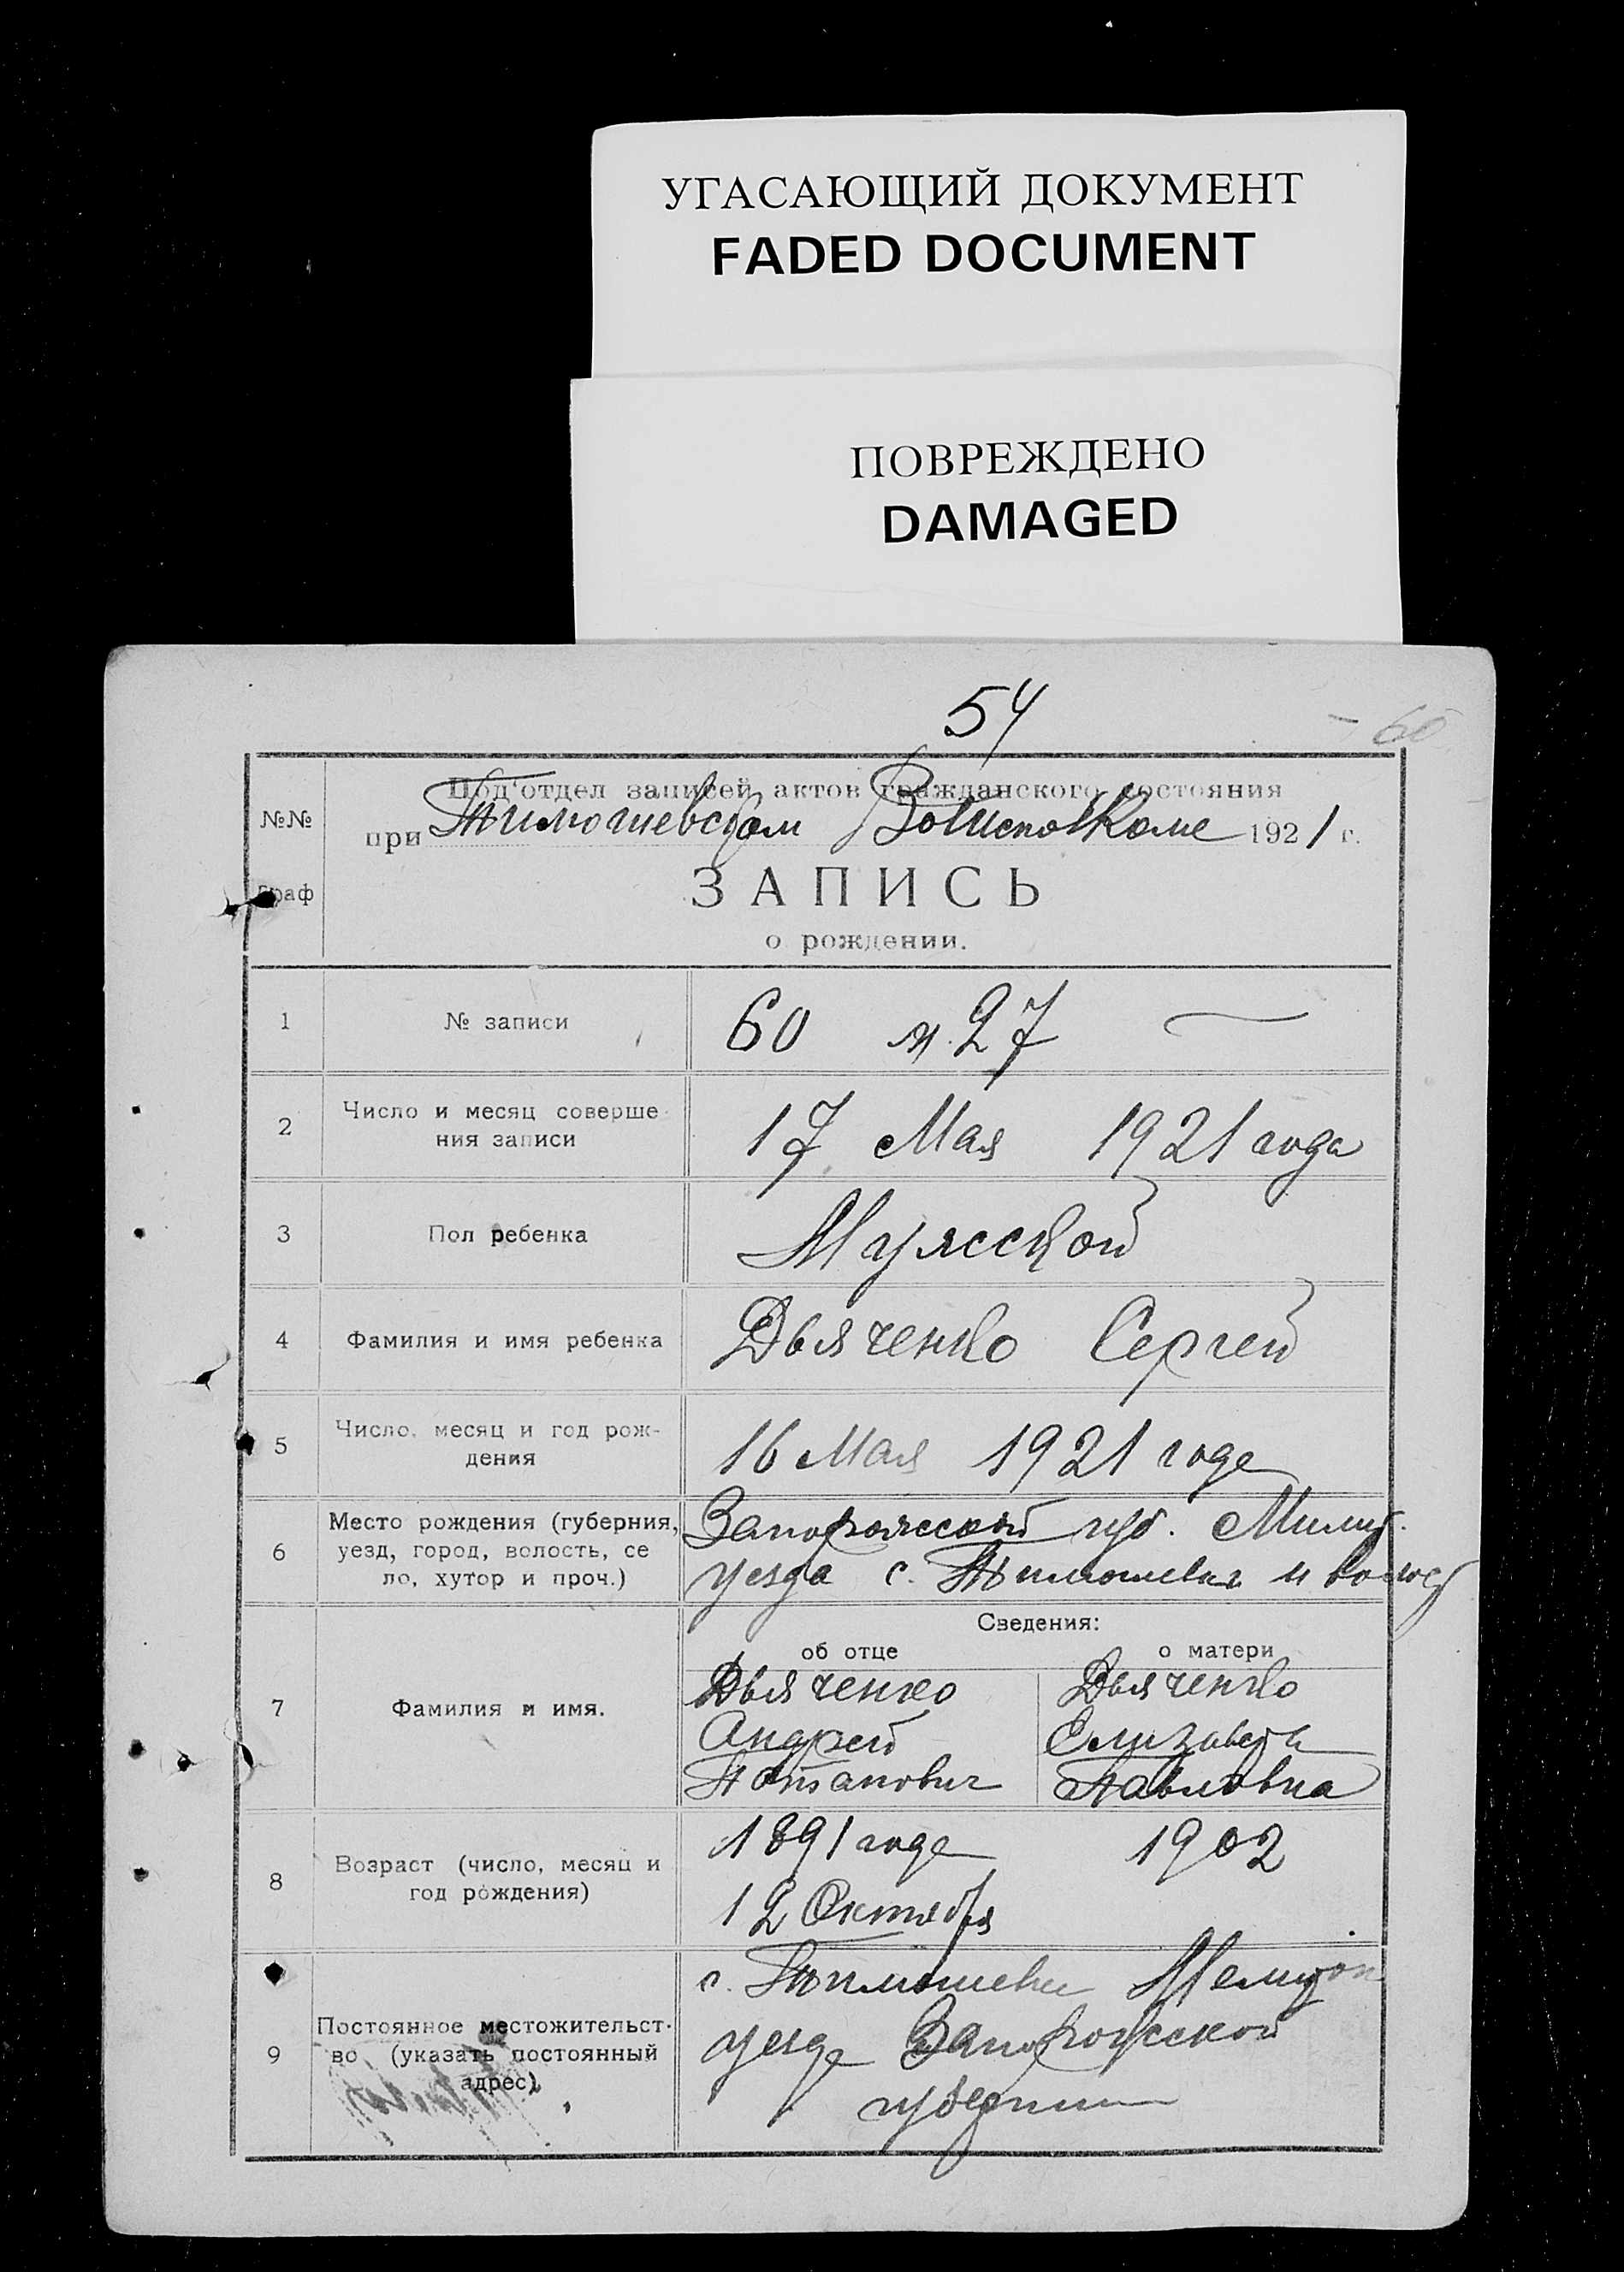 УГАСАЮЩИЙ ДОКУМЕНТ
FADED DOCUMENT
ПОВРЕЖДЕНО
DAMAGED
54
60
№№
Граф
Под'отдел записей актов гражданского состояния
при Тимошевском Волисполкоме 1921 г.
ЗАПИСЬ
о рождении.
1 № записи 60 м. 27
2 Число и месяц соверше
ния записи
17 Мая 1921 года
3 Пол ребенка Мужской
4 Фамилия и имя ребенка Дьяченко Сергей
5 Число, месяц и год рож-
дения
16 Мая 1921 года
6 Место рождения (губерния,
уезд, город, волость, се
ло, хутор и проч.)
Запорожской губ. Мелит.
уезда с. Тимошевки и волос
Сведения:
об отце о матери
7 Фамилия и имя.
Дьяченко Дьяченко
Андрей Елизавета
Потапович Павловна
8 Возраст (число, месяц и
год рождения)
1891 года 1902
12 Октября
9 Постоянное местожительст-
во (указать постоянный
адрес)
с. Тимошевки Мелитоп
уезда Запорожской
губернии